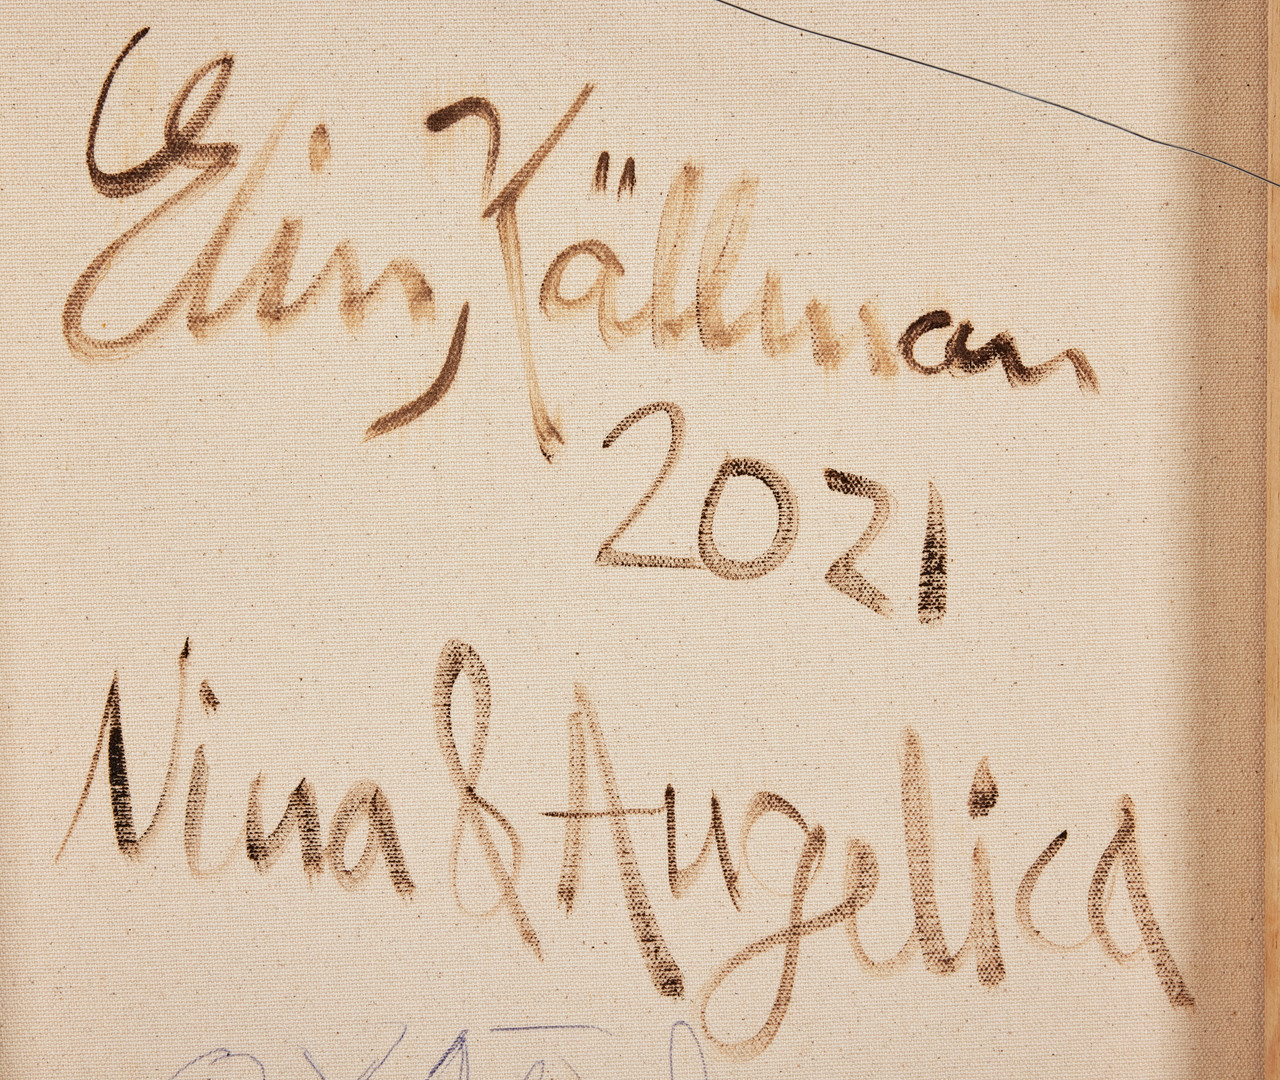 Elin Källman
2021
Nina & Angelica